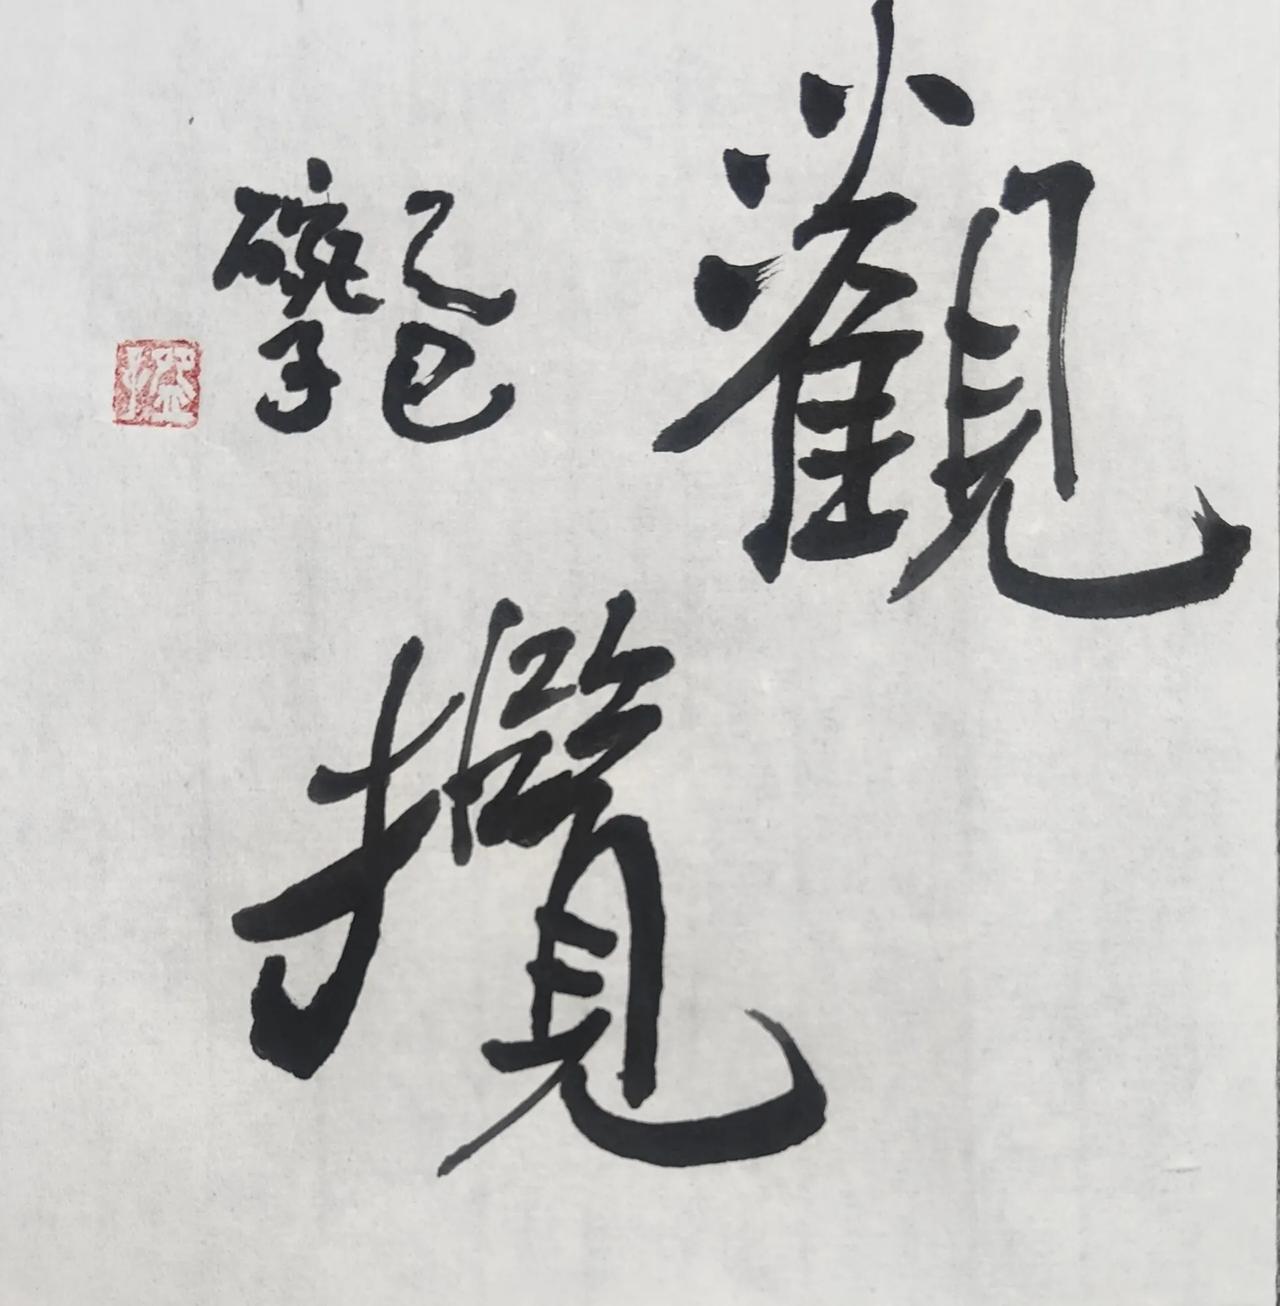 觀
攬
乙巳
碗子